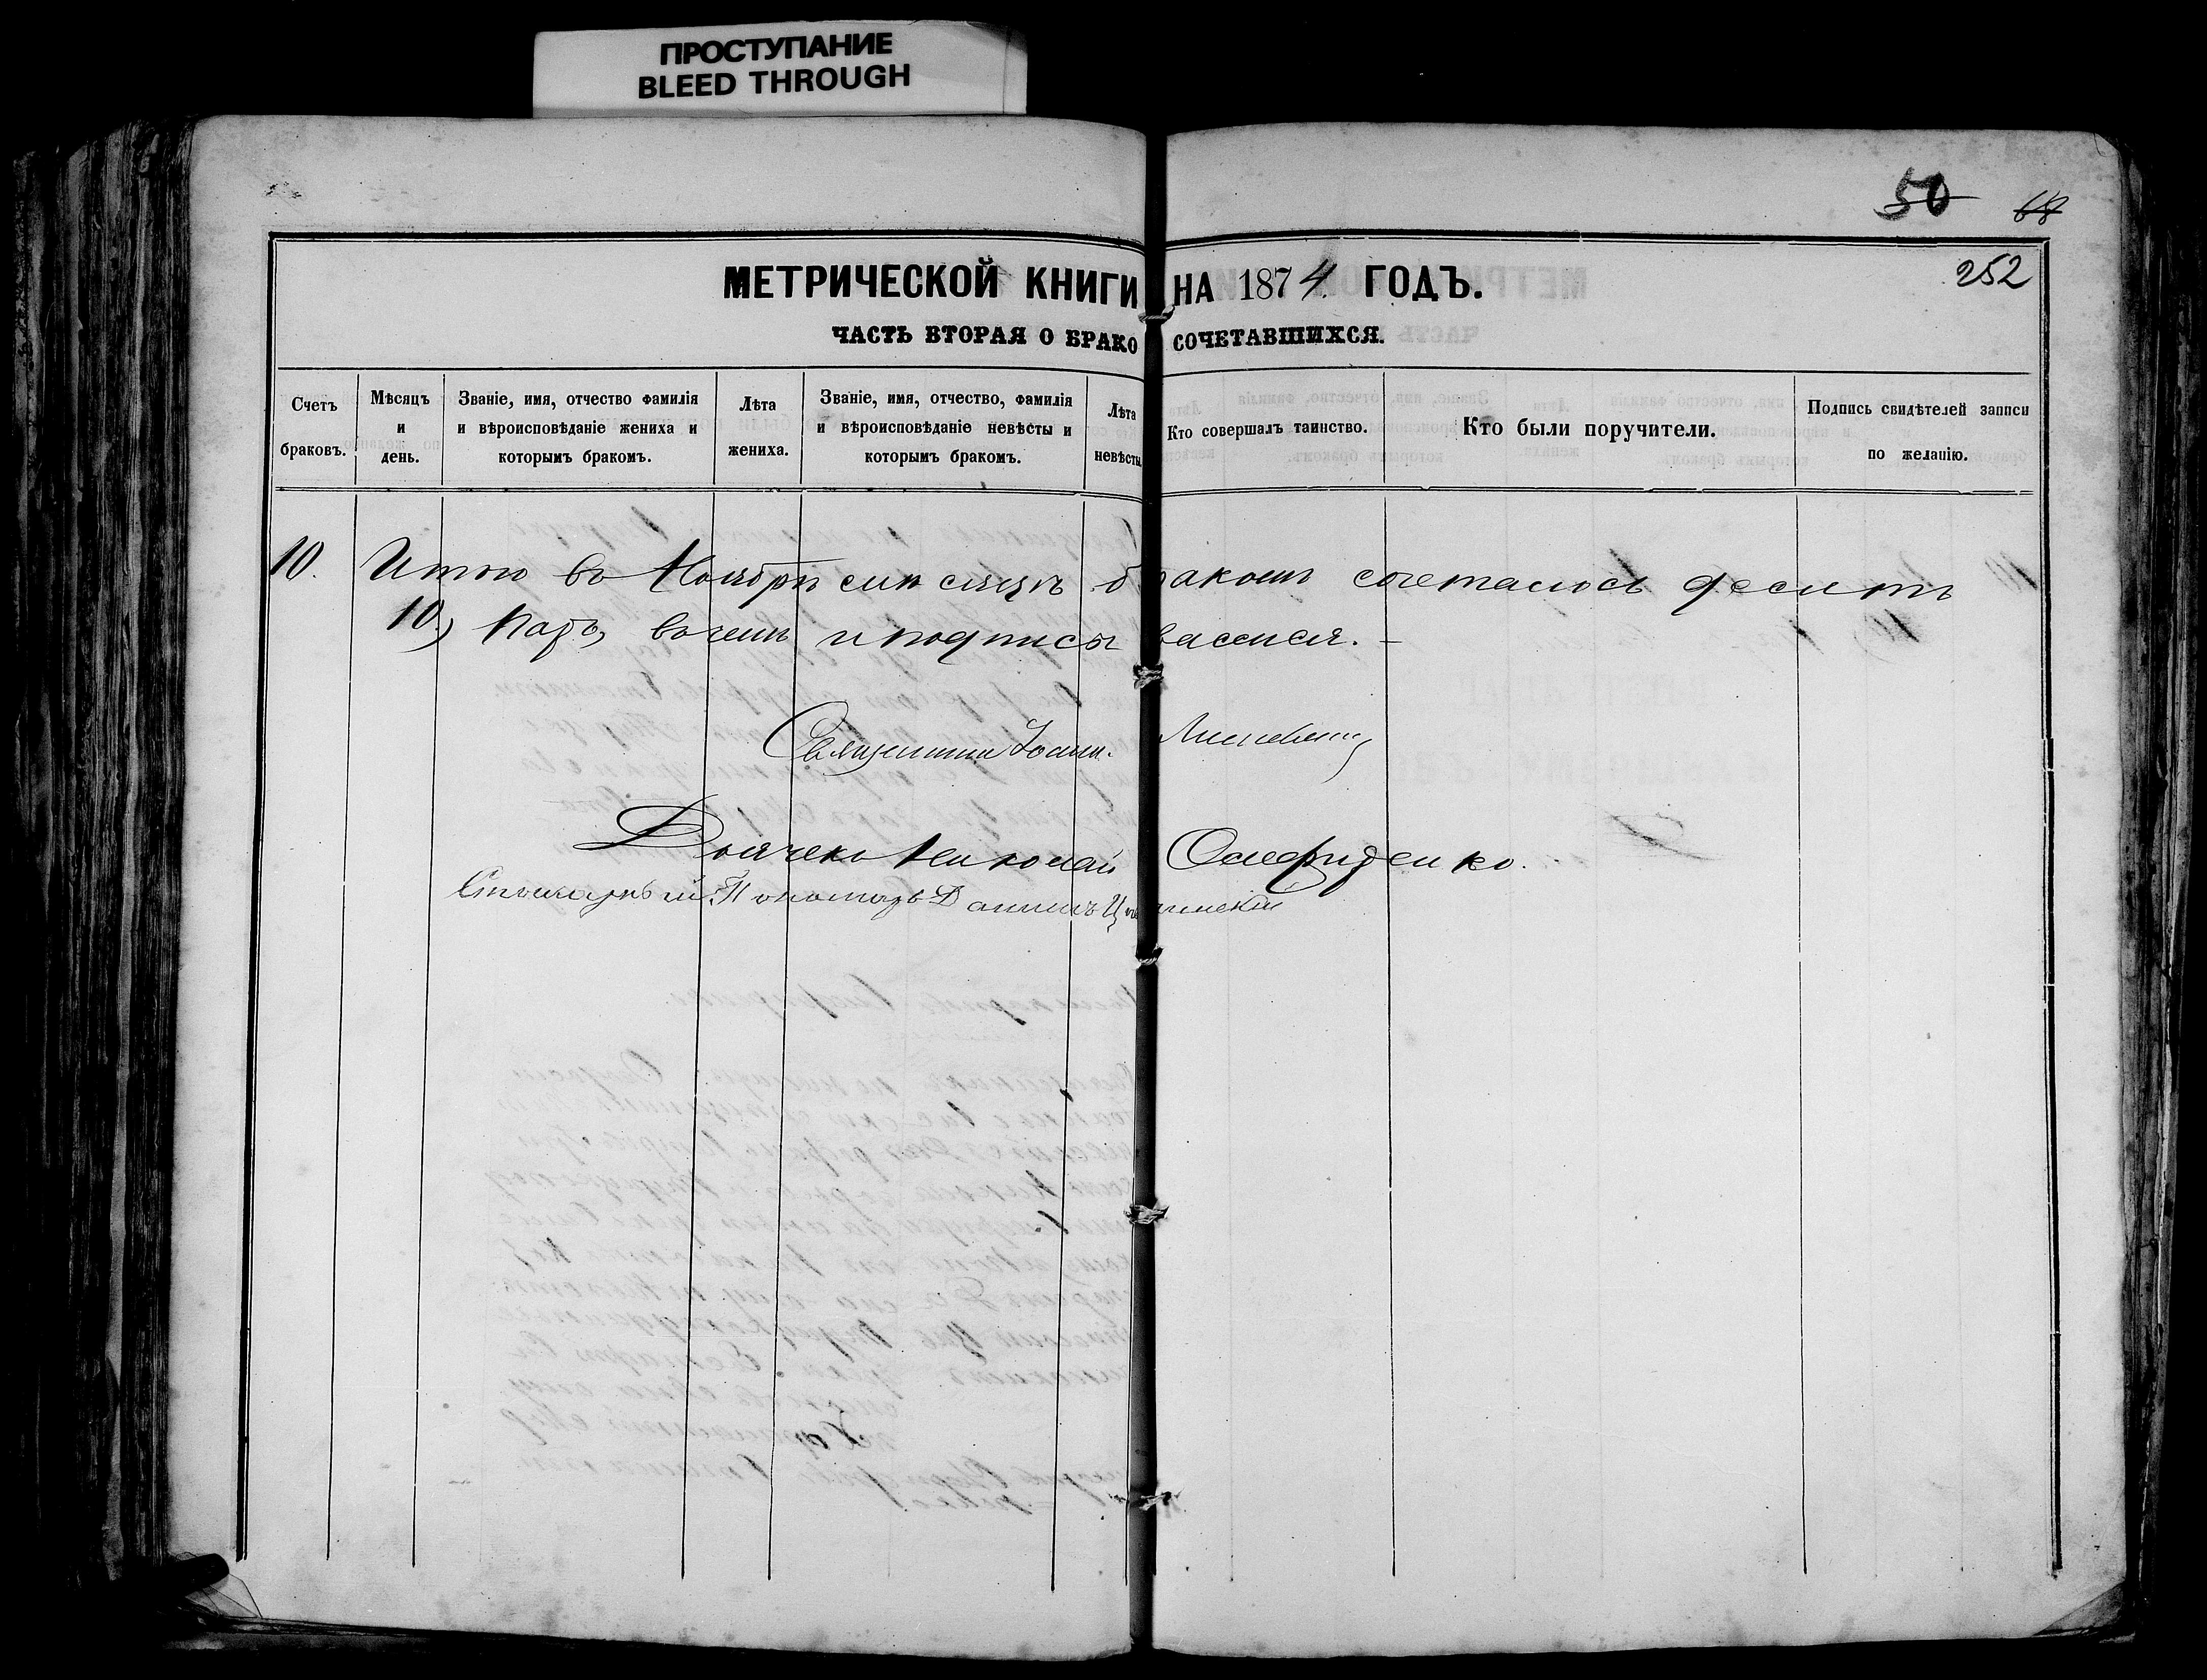 ПРОСТУПАНИЕ
BLEED THROUGH
50 68
МЕТРИЧЕСКОЙ КНИГИ НА 1874 ГОДЪ.
252
ЧАСТЬ ВТОРАЯ О БРАКОСОЧЕТАВШИХСЯ.
Счетъ браковъ.
Мѣсяцъ и день.
Званіе, имя, отчество фамилія и вѣроисповѣданіе жениха и которымъ бракомъ.
Лѣта жениха.
Званіе, имя, отчество, фамилія и вѣроисповѣданіе невѣсты и которымъ бракомъ.
Лѣта невѣсты
Кто совершалъ таинство.
Кто были поручители.
Подпись свидѣтелей записи по желанію.
10. Итого въ Ноябрѣ мѣсяцѣ бракомъ сочеталось десять
10) паръ, въ чемъ и подписываемся. –
Священникъ Іоаннъ
Дьячекъ Николай
Пономарь Даніилъ